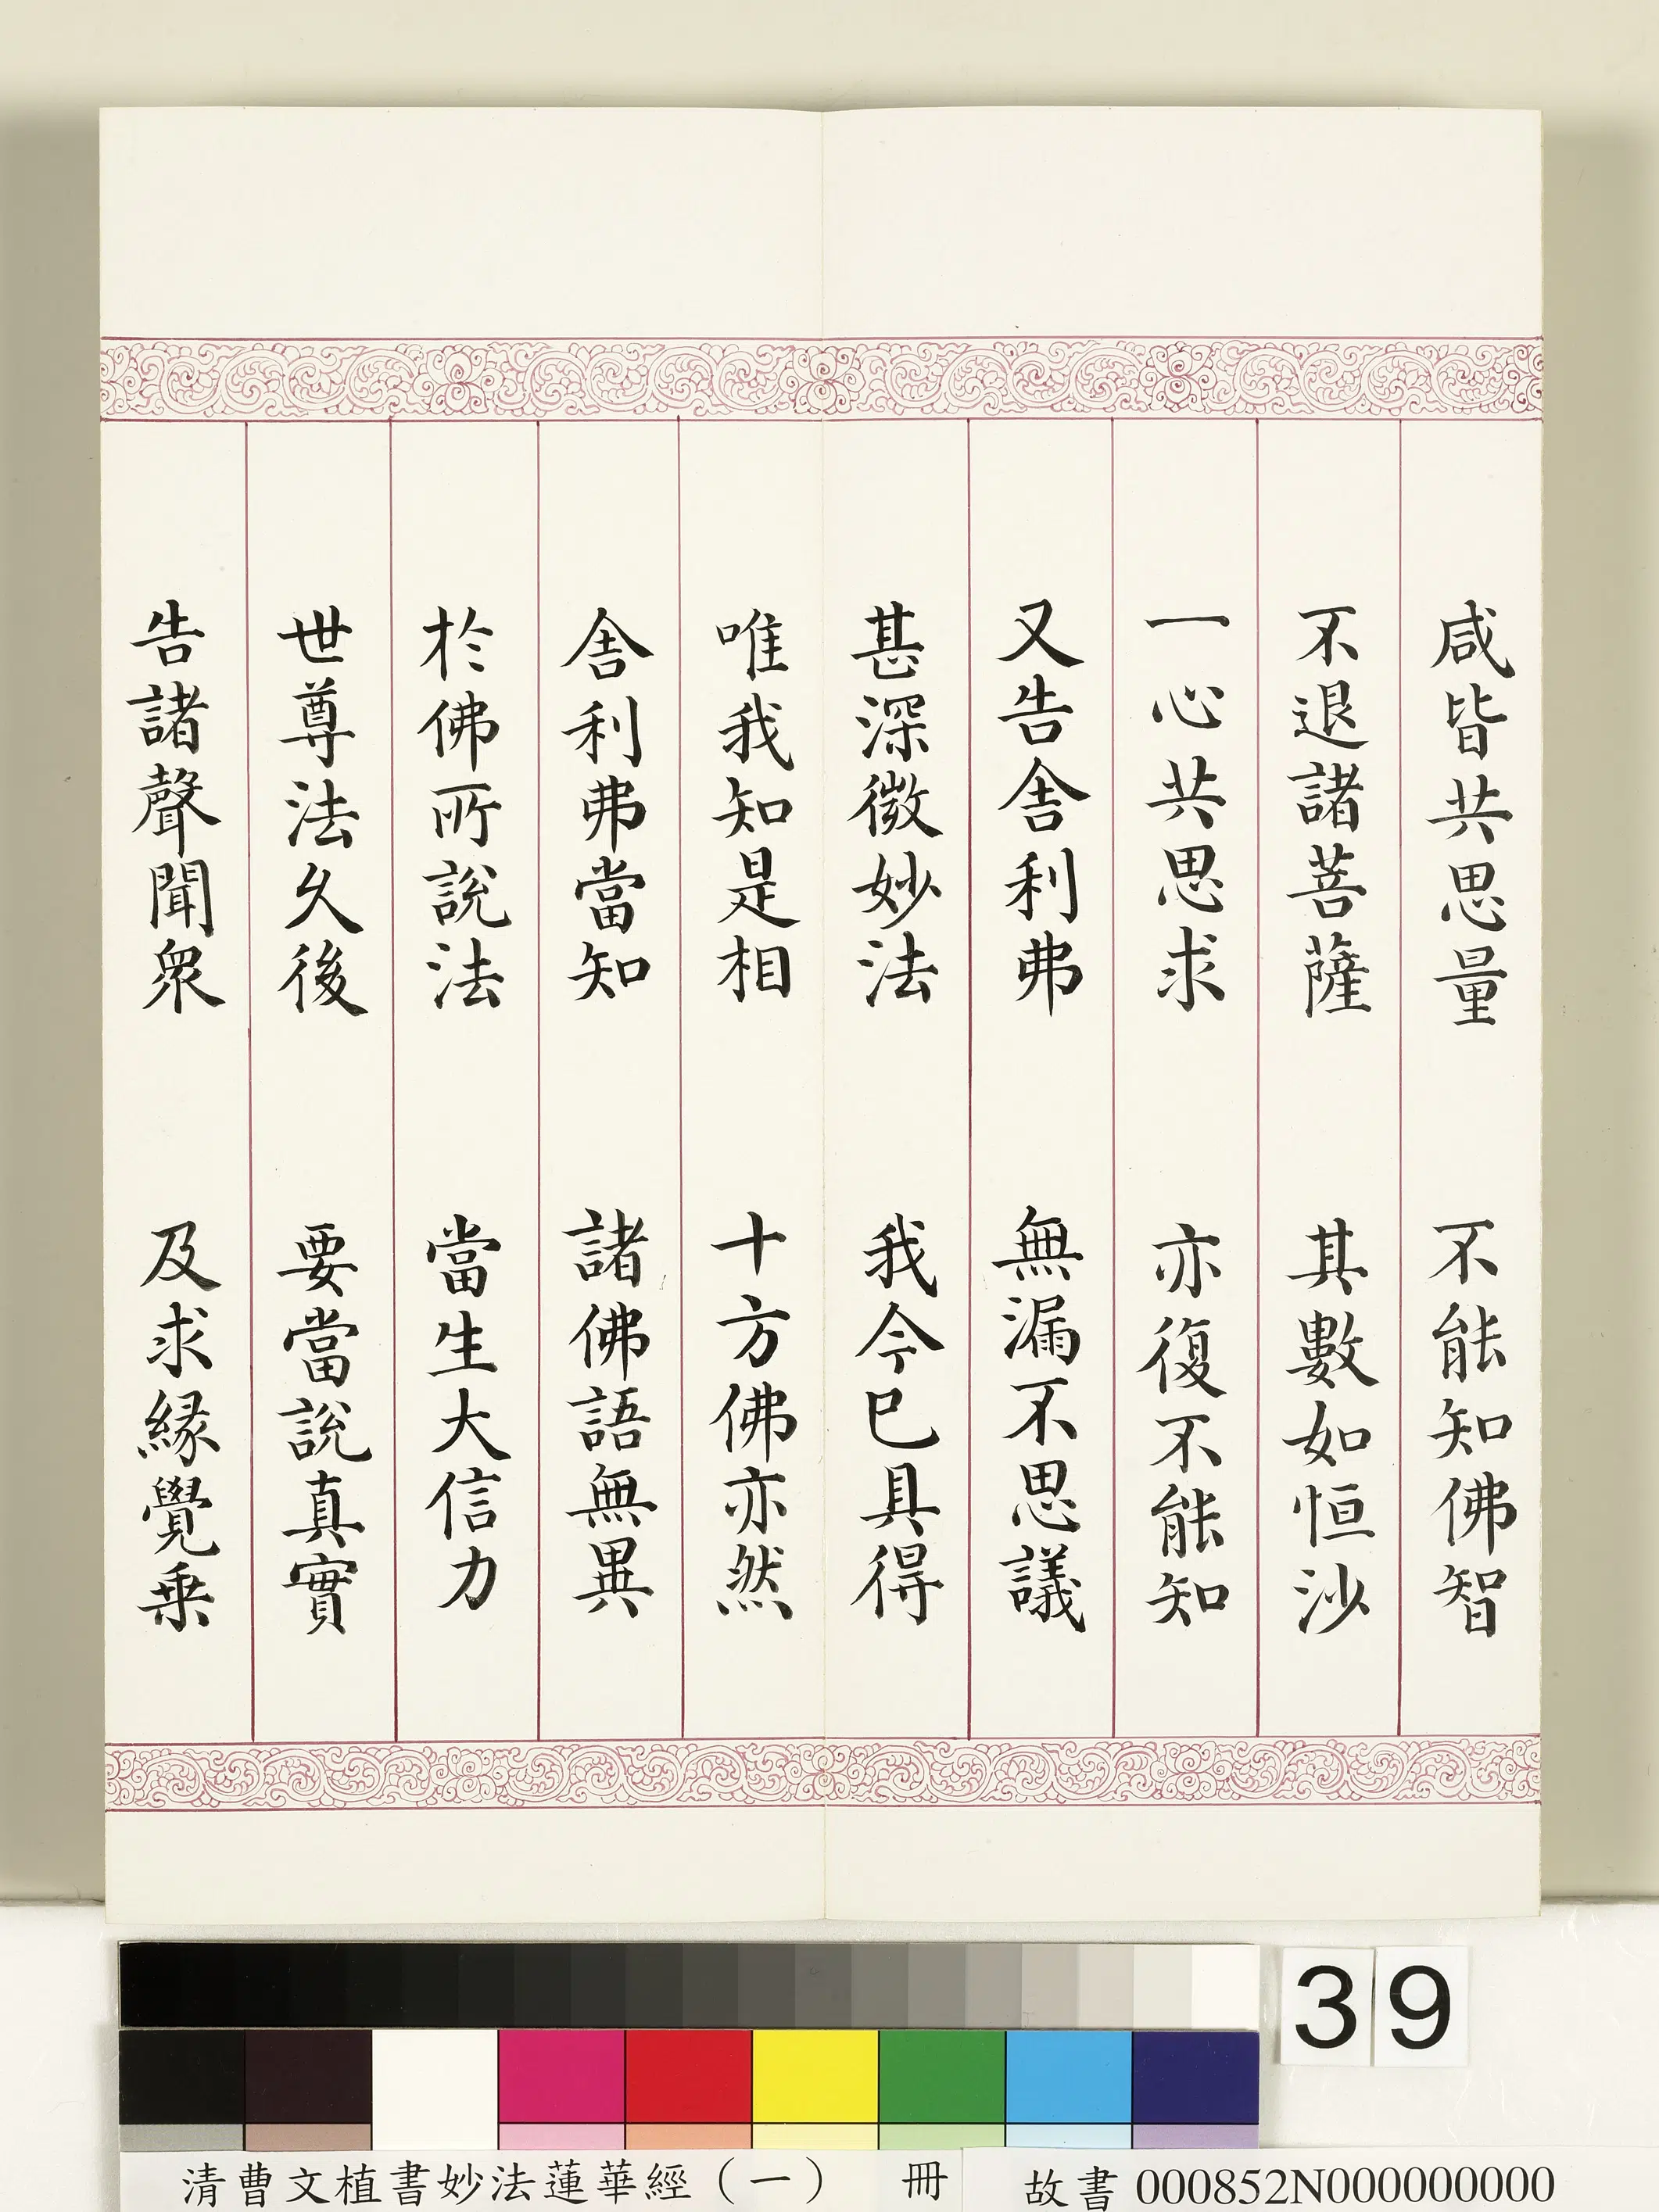 咸皆共思量　不能知佛智
不退諸菩薩　其數如恒沙
一心共思求　亦復不能知
又告舍利弗　無漏不思議
甚深微妙法　我今已具得
唯我知是相　十方佛亦然
舍利弗當知　諸佛語無異
於佛所說法　當生大信力
世尊法久後　要當說真實
告諸聲聞衆　及求緣覺乘
39
清曹文植書妙法蓮華經（一）　冊
故書000852N000000000